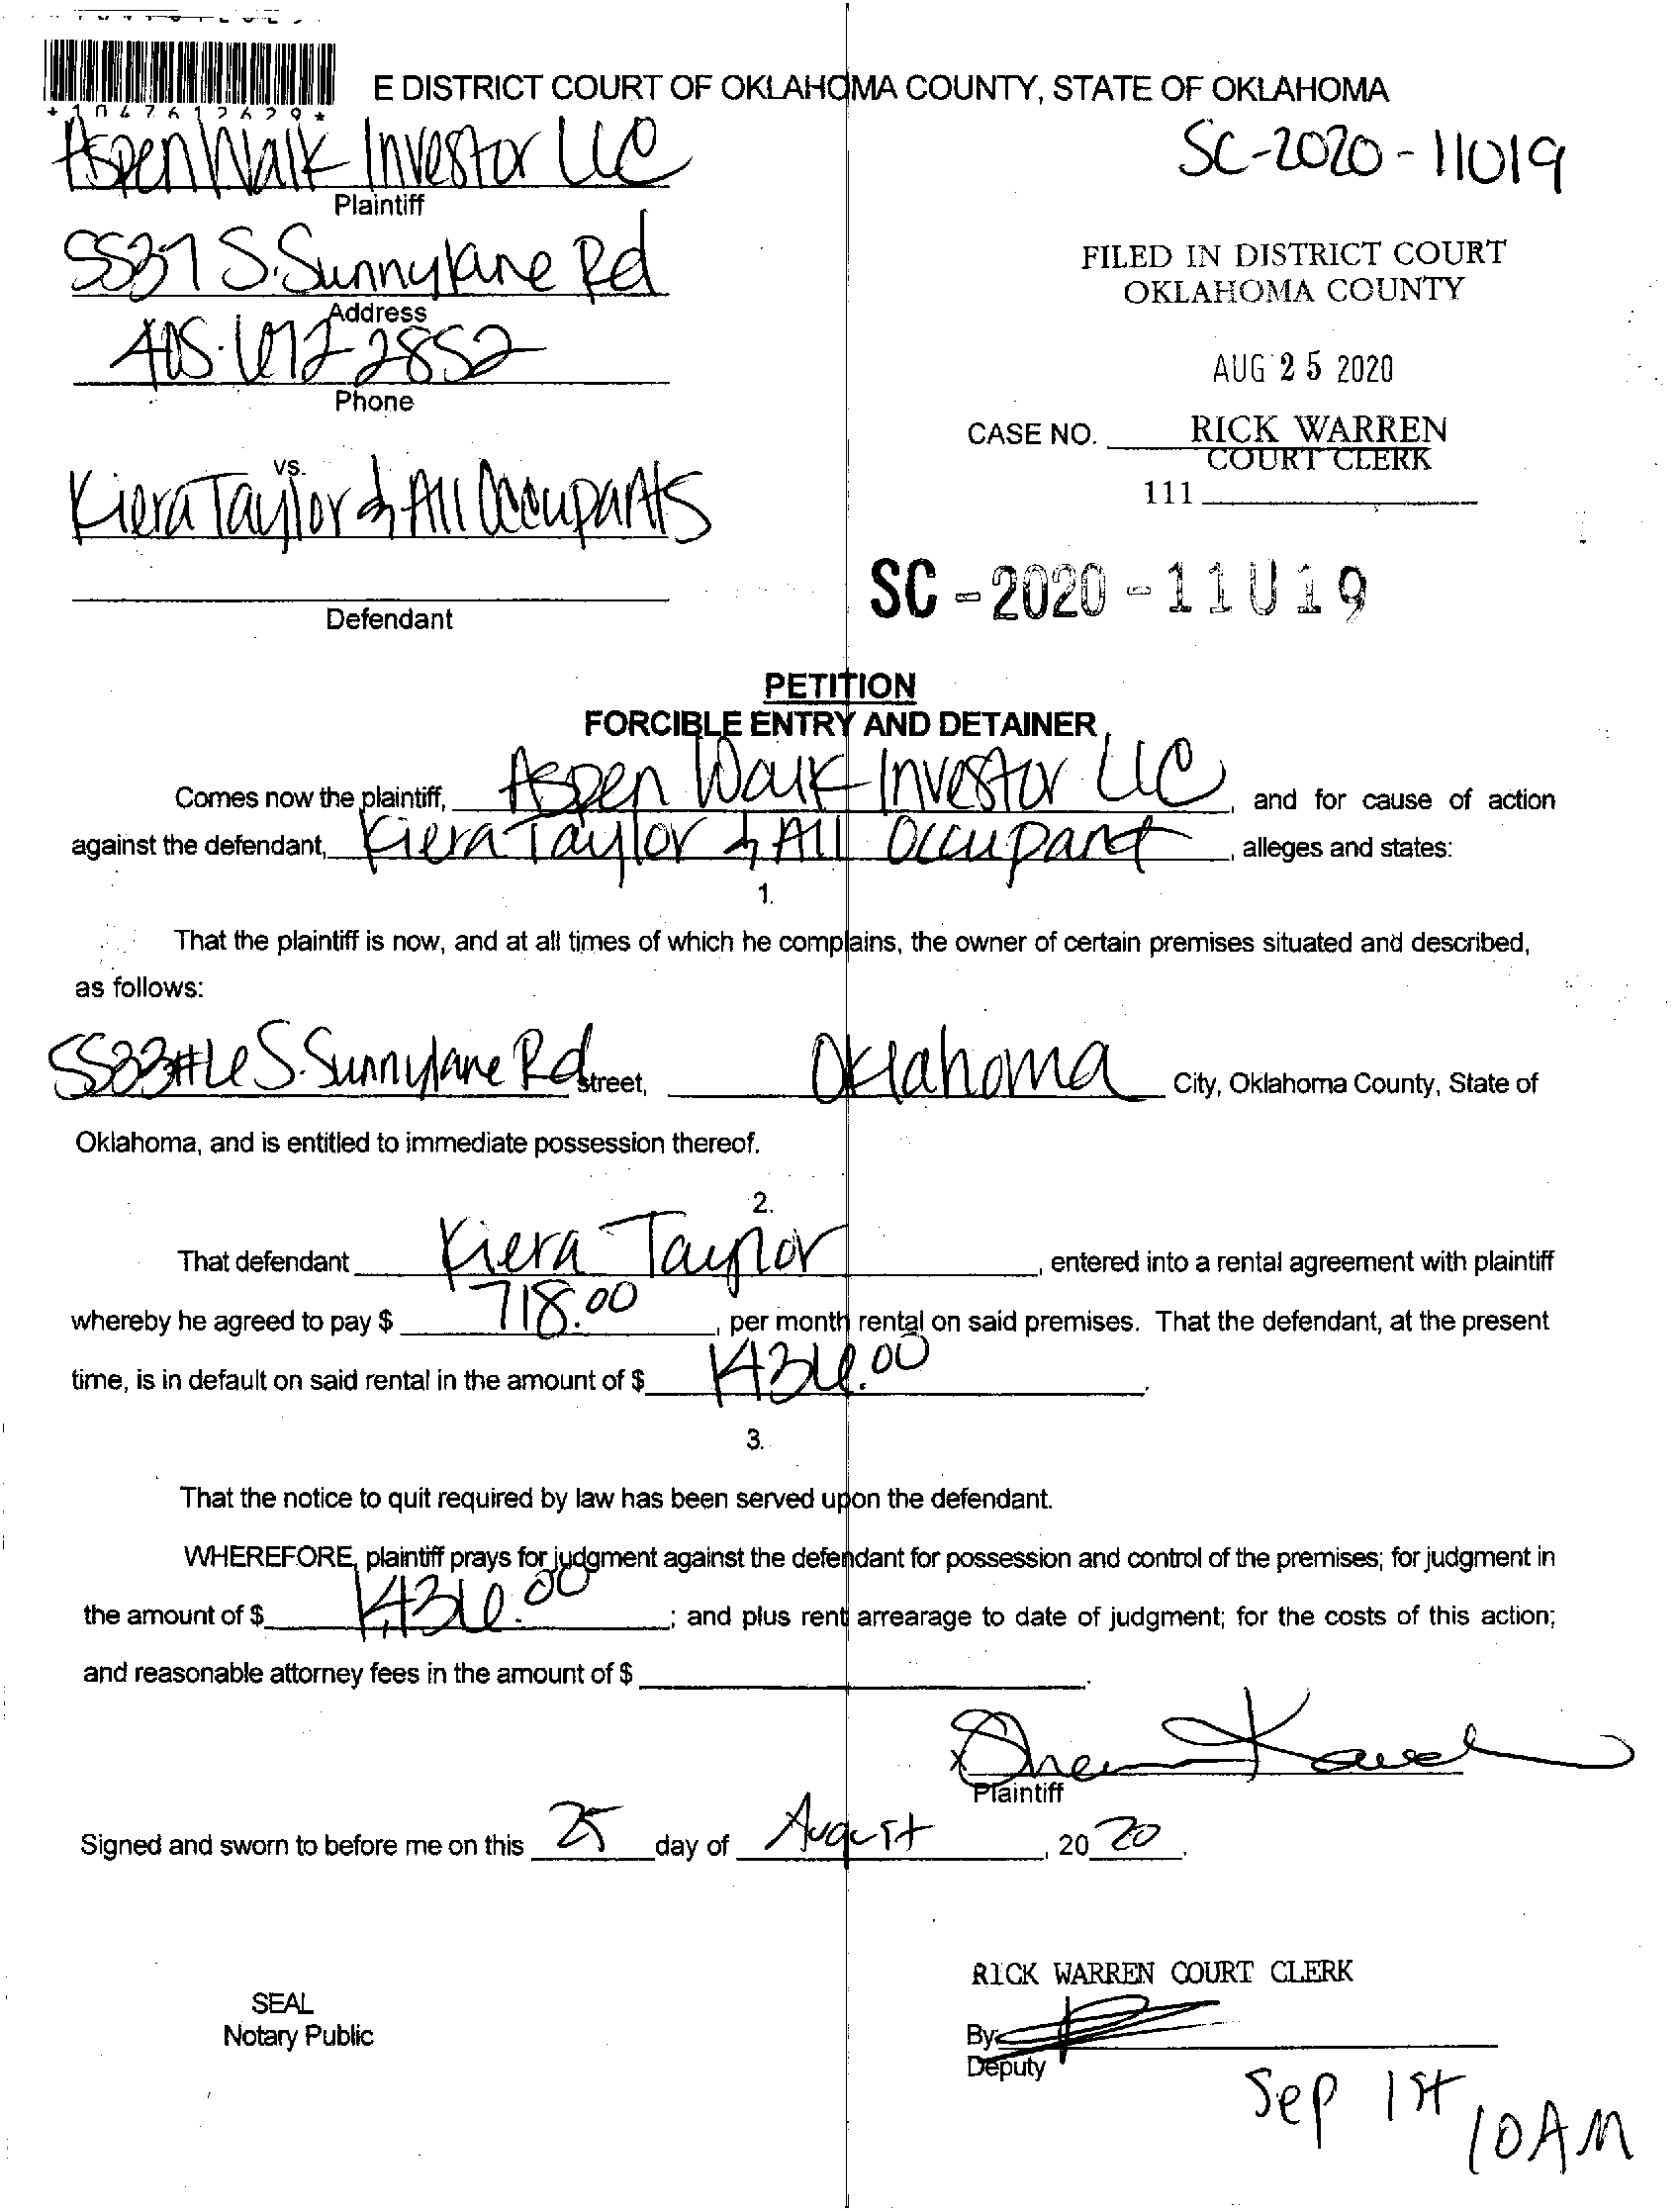 *1047612629*
E DISTRICT COURT OF OKLAHOMA COUNTY, STATE OF OKLAHOMA
Aspen Walk Investor LLC
SC-2020-11019
Plaintiff
5537 S. Sunnylane Rd
FILED IN DISTRICT COURT
OKLAHOMA COUNTY
Address
405-672-2852
AUG 25 2020
Phone
CASE NO. RICK WARREN
COURT CLERK
vs.
111
Kiera Taylor & All Occupants
SC-2020-11019
Defendant
PETITION
FORCIBLE ENTRY AND DETAINER
Comes now the plaintiff, Aspen Walk Investor LLC, and for cause of action
against the defendant, Kiera Taylor & All Occupant, alleges and states:
1.
That the plaintiff is now, and at all times of which he complains, the owner of certain premises situated and described,
as follows:
5533#6 S. Sunnylane Rd street, Oklahoma City, Oklahoma County, State of
Oklahoma, and is entitled to immediate possession thereof.
2.
That defendant Kiera Taylor, entered into a rental agreement with plaintiff
whereby he agreed to pay $ 718.00, per month rental on said premises. That the defendant, at the present
time, is in default on said rental in the amount of $ 1436.00.
3.
That the notice to quit required by law has been served upon the defendant.
WHEREFORE, plaintiff prays for judgment against the defendant for possession and control of the premises; for judgment in
the amount of $ 1,436.00; and plus rent arrearage to date of judgment; for the costs of this action;
and reasonable attorney fees in the amount of $ .
x
Plaintiff
Signed and sworn to before me on this 25 day of August, 20 20.
RICK WARREN COURT CLERK
SEAL
Notary Public
By
Deputy
Sep 1st
10AM